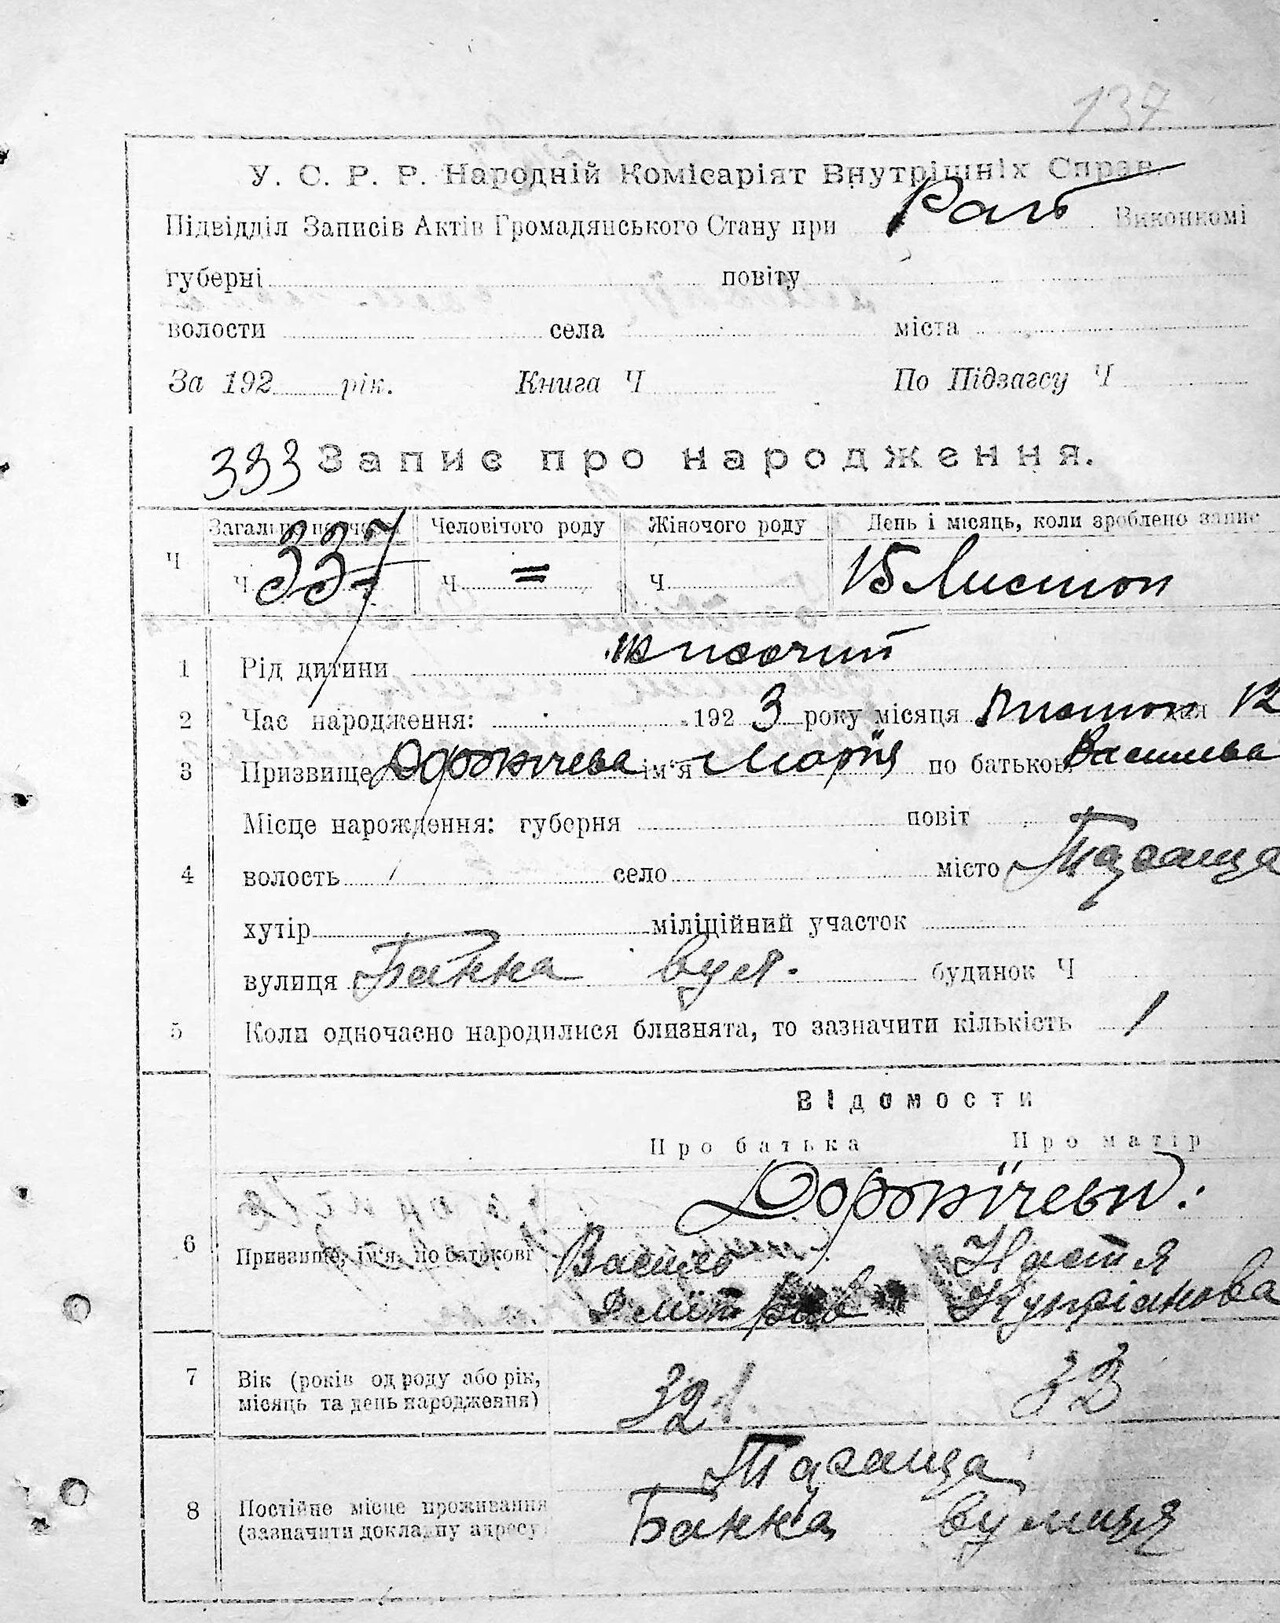 137
У. С. Р. Р. Народній Комісаріят Внутрішніх Справ
Підвідділ Записів Актів Громадянського Стану при Виконкомі
губерні повіту
волости села міста
За 192 рік. Книга Ч По Підзагсу Ч
333 Запис про народження.
Загальне Человічого роду Жіночого роду День і місяць, коли зроблено запис
Ч Ч 337 Ч = Ч 15 Листоп
1 Рід дитини жиночий
2 Час народження: 1923 року місяця Листоп дня 12
3 Призвище Дорожічева ім'я Марія по батькові Васильева
Місце народження: губерня повіт
4 волость село місто Тараща
хутір міліційний участок
вулиця Банна вул. будинок Ч
5 Коли одночасно народилися близнята, то зазначити кількість 1
Відомости
Про батька Про матір
Дорожічеви:
6 Призвище, ім'я, по батькові Василь Настя
Купріянова
7 Вік (років од роду або рік, 32 л. 32
місяць та день народження)
Тараща
8 Постійне місце проживання Банна вулиця
(зазначити докладну адресу)